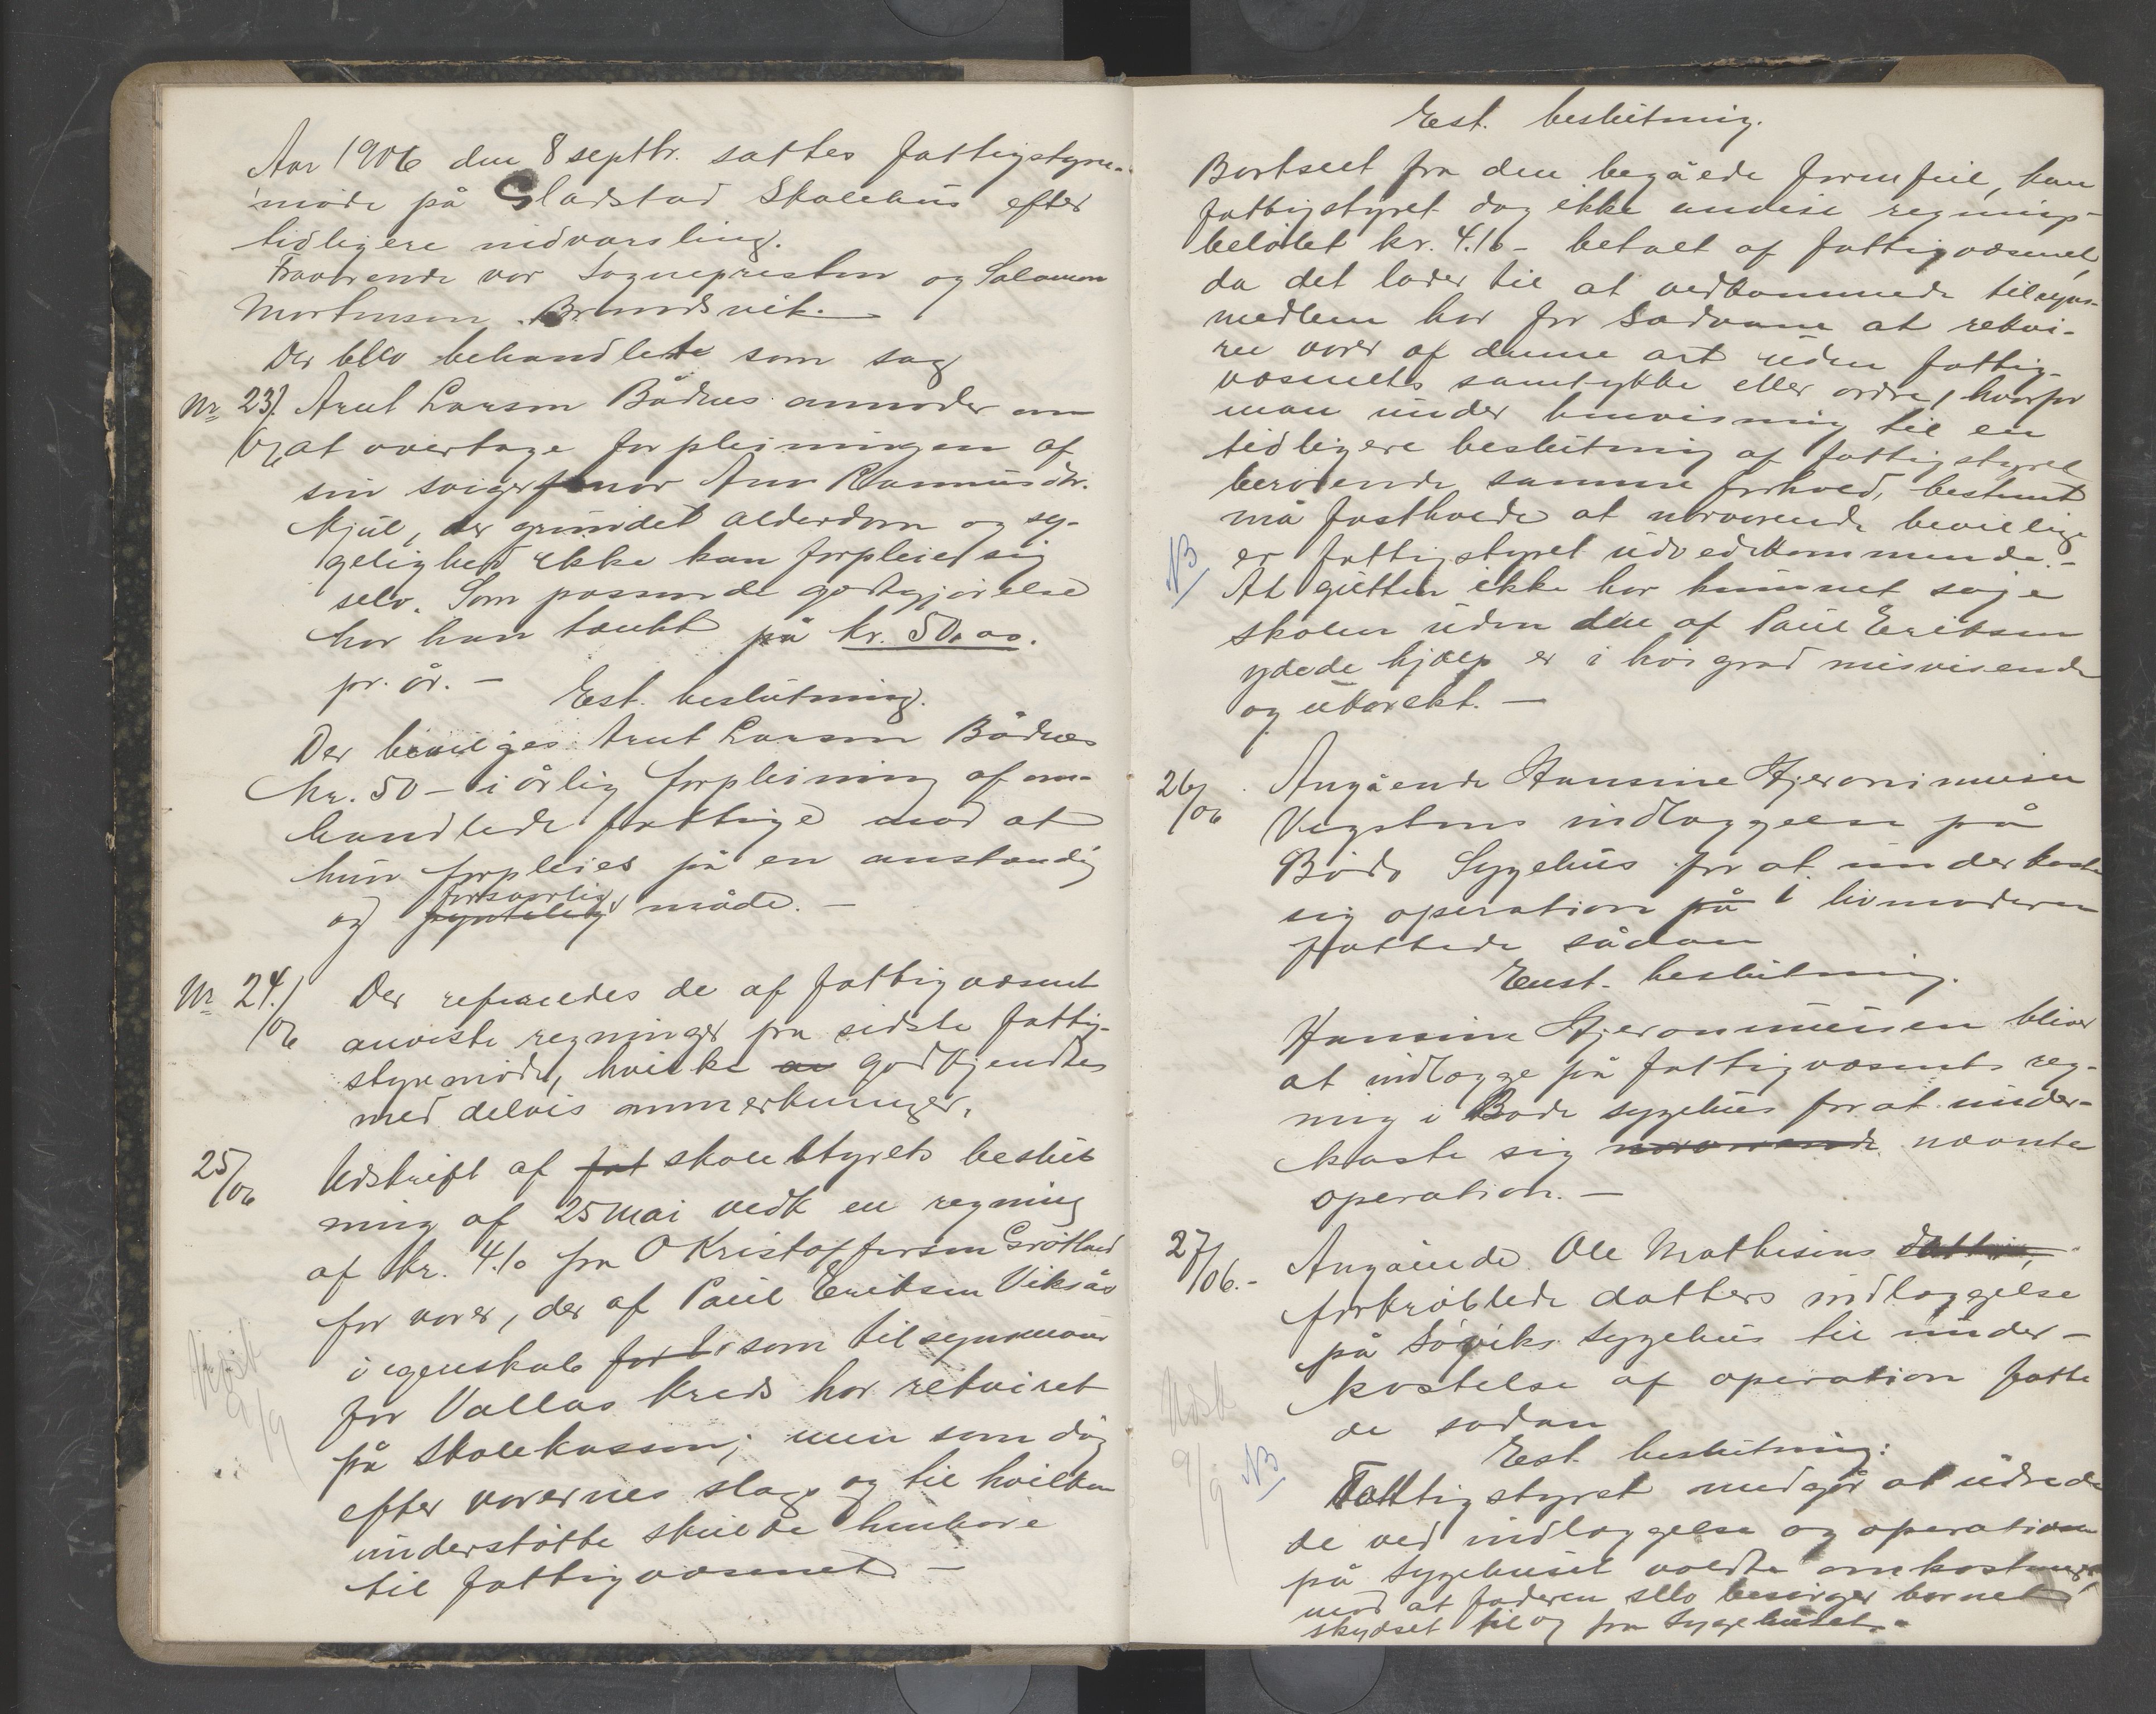 Aar 1906 den 8 septbr. sattes fattigstyre-
møde på Gladstad Skolehus efter
tidligere nidvarsling.
Fraværende var Sognepresten og Salamon
Mortensen Brandsvik.
Der blev behandlede som sag
Nr 23/06 Arnt Larsen Bådnes anmoder om
at overtage forpleiningen af
sin svigermor Ane Rasmusdtr.
Kjul, der grundet alderdom og sy-
gelighed ikke kan forpleie sig
selv. Som passende godtgjørelse
har han tænkt på kr. 50.00.
pr. år. -
Est. beslutning.
Der beviliges Arnt Larsen Bådnes
kr. 50 - i årlig forpleining af om-
handlede fattige mod at
hun forpleies på en anstændig
og forsvarlig måde. -
Nr 24/06 Der refereredes de af fattigvæsnet
anviste regninger fra sidste fattig-
styremøde, hvilke godkjendtes
med delvis anmerkninger.
25/06 Udskrift af fat skolestyrets beslut
ning af 25 mai vedk en regning
af kr. 4.10 fra O Kristoffersen Grøtland
for varer, der af Paul Eriksen Viksås
i egenskab for t. som tilsynsmand
for Vallas kreds har rekviret
på skolekassen; men som dog
efter varernes slags og til hvilken
understøtte skulde henhøre
til fattigvæsnet -
9/9
Est. beslutning.
Bortseet fra den begåede formfeil, kan
fattigstyret dog ikke andvise regnings-
beløbet kr. 4.10 - betalt af fattigvæsnet,
da det lader til at vedkommende tilsyns-
medlem har for sædvane at rekvi-
rere varer af denne art uden fattig-
væsnets samtykke eller ordre, hvorfor
man under henvisning til en
tidligere beslutning af fattigstyret
berørende samme forhold, bestemt
må fastholde at nærværende bevilling
NB er fattigstyret uvedkommende. -
At gutten ikke har kunnet søge
skolen uden den af Paul Eriksen
ydede hjælp er i høi grad misvisende
og ukorekt. -
26/06 Angående Hansine Hjeronimusen
Vegstens indlæggelse på
Bodø Sygehus for at underkaste
sig operation på i livmoderen
fattede sådan
Enst. beslutning.
Hansine Hjeronimusen bliver
at indlægge på fattigvæsnets reg-
ning i Bodø sygehus for at under-
kaste sig nærværende nævnte
operation. -
27/06. - Angående Ole Mathisens datter,
forkrøblede datters indlæggelse
på Søviks sygehus til under-
kastelse af operation fatte
de sadan
Udsk
9/9
NB
Est. beslutning:
Fattigstyret medgår at udrede
de ved indlæggelse og operationen
på sygehuset voldte omkostninger
mod at faderen selv besørger barnets
skydset til og fra sygehuset. -